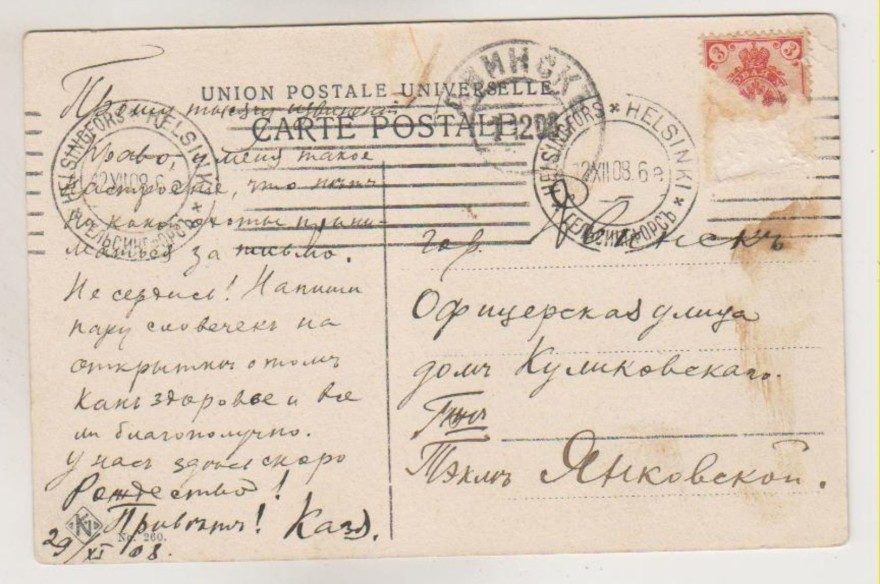 UNION POSTALE UNIVERSELLE
CARTE POSTALE
HELSINGFORS * HELSINKI * ГЕЛЬСИНГФОРСЪ *
12.XII.08.6 e
HELSINGFORS * HELSINKI * ГЕЛЬСИНГФОРСЪ *
12.XII.08.6 e
МИНСКЪ
1208
3 3
Прошу тысячу
Право, у меня такое
настроеніе, что нѣтъ
охоты прини-
маться за письмо.
Не сердись! Напиши
пару словечекъ на
открыткѣ о томъ
какъ здоровье и все
ли благополучно.
У насъ здѣсь скоро
Рождество!
Привѣтъ! Казя.
29/XI 08.
No. 260.
гор. Минскъ
Офицерская улица
домъ Куликовскаго.
Тэклѣ Янковской.